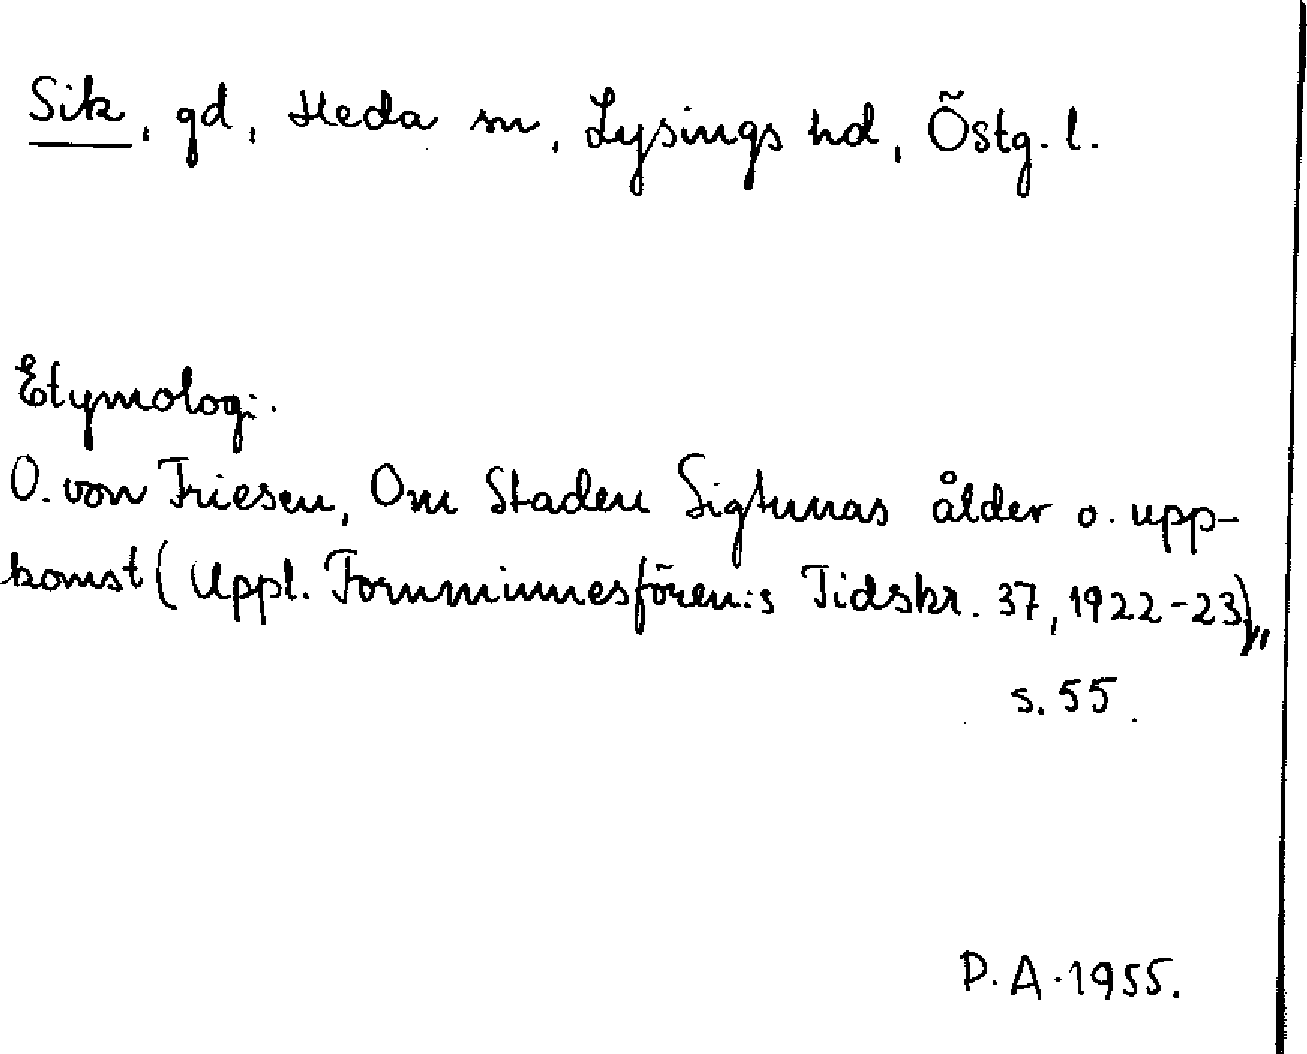 Sik, gd, Heda sn, Lysings hd, Östg. l.
Etymologi.
O. von Friesen, Om Staden Sigtunas ålder o. upp-
komst (Uppl. Fornminnesfören:s Tidskr. 37, 1922-23),,
s. 55.
P. A. 1955.